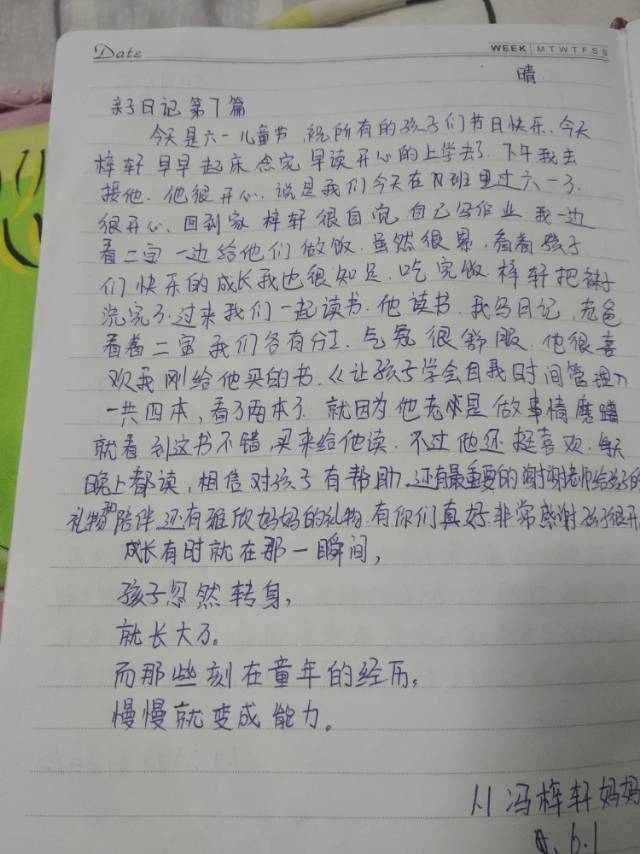 Date
WEEK M T W T F S S
晴
亲子日记第7篇
今天是六一儿童节,祝所有的孩子们节日快乐.今天
梓轩早早起床念完早读开心的上学去了.下午我去
接他.他很开心,说是我们今天在N班里过六一了.
很开心.回到家梓轩很自觉自己写作业我一边
看二宝一边给他们做饭.虽然很累.看着孩子
们快乐的成长我也很知足.吃完饭梓轩把袜子
洗完了.过来我们一起读书.他读书.我写日记,老爸
看着二宝我们各有分工.气氛很舒服.他很喜
欢我刚给他买的书.《让孩子学会自我时间管理》
一共四本,看了两本了.就因为他老是做事情磨蹭
就看到这书不错.买来给他读.不过他还挺喜欢.每天
晚上都读,相信对孩子有帮助.还有最重要的谢谢老师给孩子的
礼物陪伴.还有雅欣妈妈的礼物.有你们真好.非常感谢孩子很开
成长有时就在那一瞬间,
孩子忽然转身,
就长大了。
而那些刻在童年的经历,
慢慢就变成能力。
冯梓轩妈妈
6.1